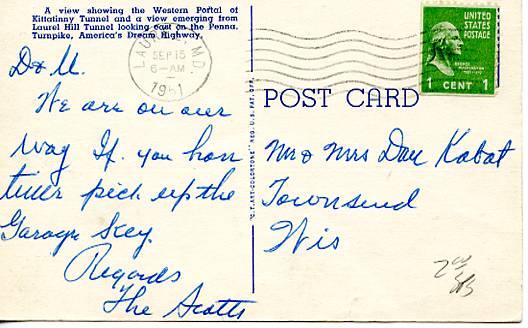 A view showing the Western Portal of
Kittatinny Tunnel and a view emerging from
Laurel Hill Tunnel looking east on the Penna.
Turnpike, America's Dream Highway.
D & M.
We are on our
way If you have
time pick up the
Garage Key.
Regards
The Scotts
MD.
SEP 15
6-AM
1951
"C.T. ART-COLORTONE" REG. U.S. PAT. OFF.
UNITED
STATES
POSTAGE
1 CENT 1
POST CARD
Mr & Mrs Dan Kabat
Townsend
Wis